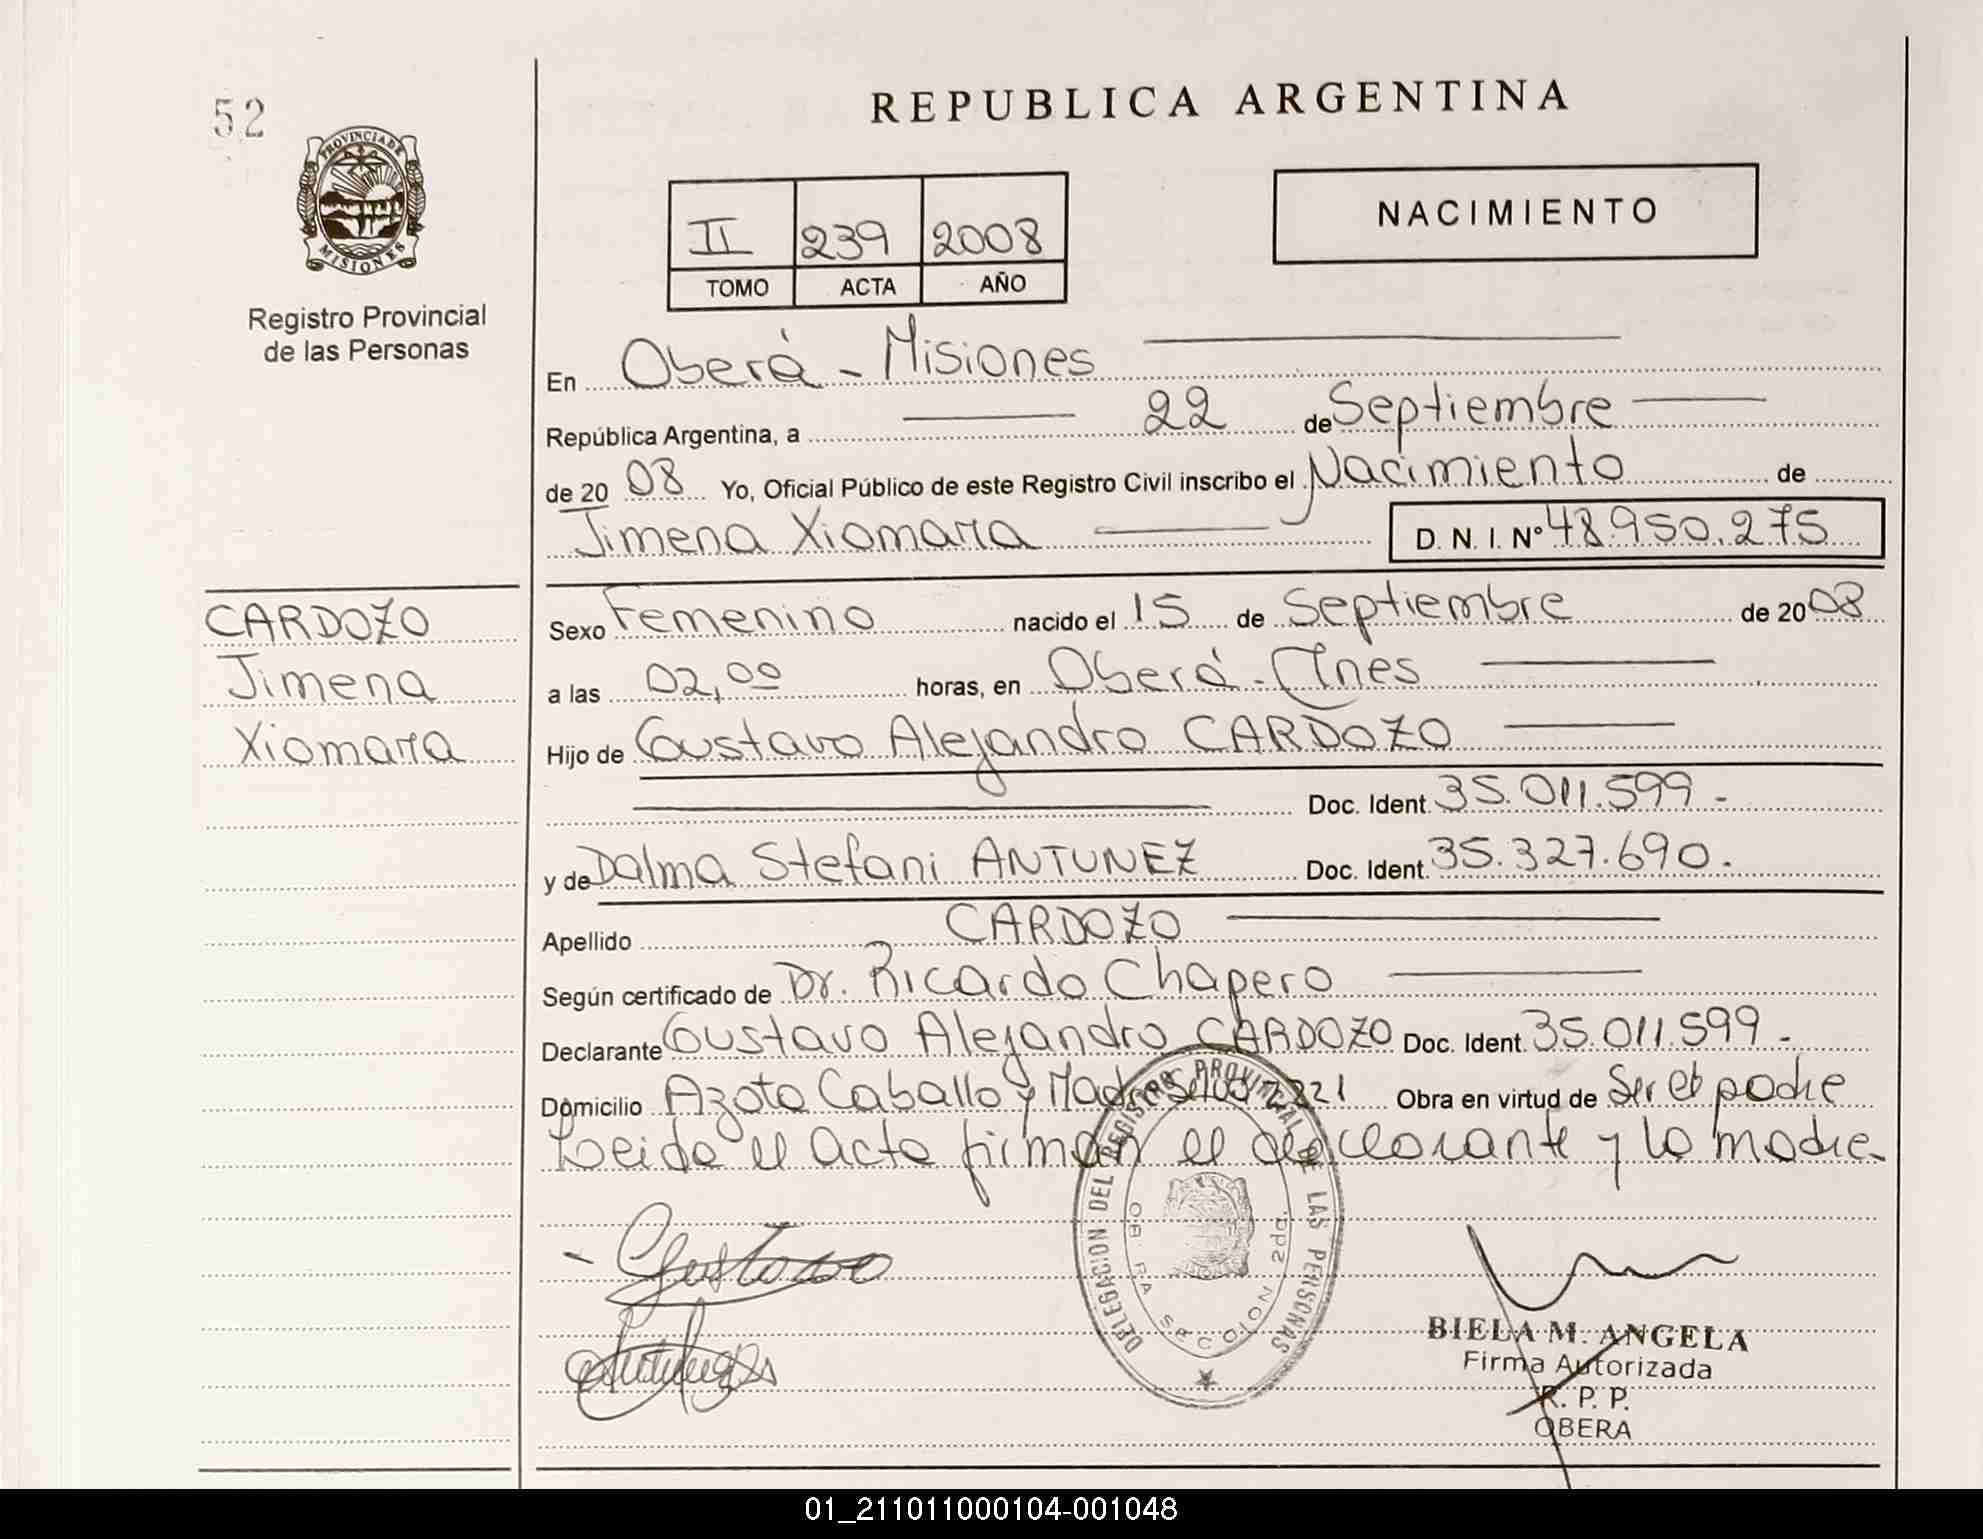 52
PROVINCIA DE
MISIONES
Registro Provincial
de las Personas
REPUBLICA ARGENTINA
II 239 2008
TOMO ACTA AÑO
NACIMIENTO
En Oberá - Misiones
República Argentina, a 22 de Septiembre
de 20 08 Yo, Oficial Público de este Registro Civil inscribo el Nacimiento de
Jimena Xiomara D. N. I. Nº 48.950.275
CARDOZO
Jimena
Xiomara
Sexo Femenino nacido el 15 de Septiembre de 20 08
a las 02,00 horas, en Oberá - Mnes
Hijo de Gustavo Alejandro CARDOZO
Doc. Ident. 35.011.599 -
y de Dalma Stefani ANTUNEZ Doc. Ident. 35.327.690.
Apellido CARDOZO
Según certificado de Dr. Ricardo Chapero
Declarante Gustavo Alejandro CARDOZO Doc. Ident. 35.011.599 -
Domicilio Azota Caballo y Madre Selva Obra en virtud de Ser el padre
Leida el acta firman el declarante y la madre-
DELEGACION DEL REGISTRO PROVINCIAL DE LAS PERSONAS
OB RA SECCION 2da.
Gustavo
BIELA M. ANGELA
Firma Autorizada
R. P. P.
OBERA
01_211011000104-001048